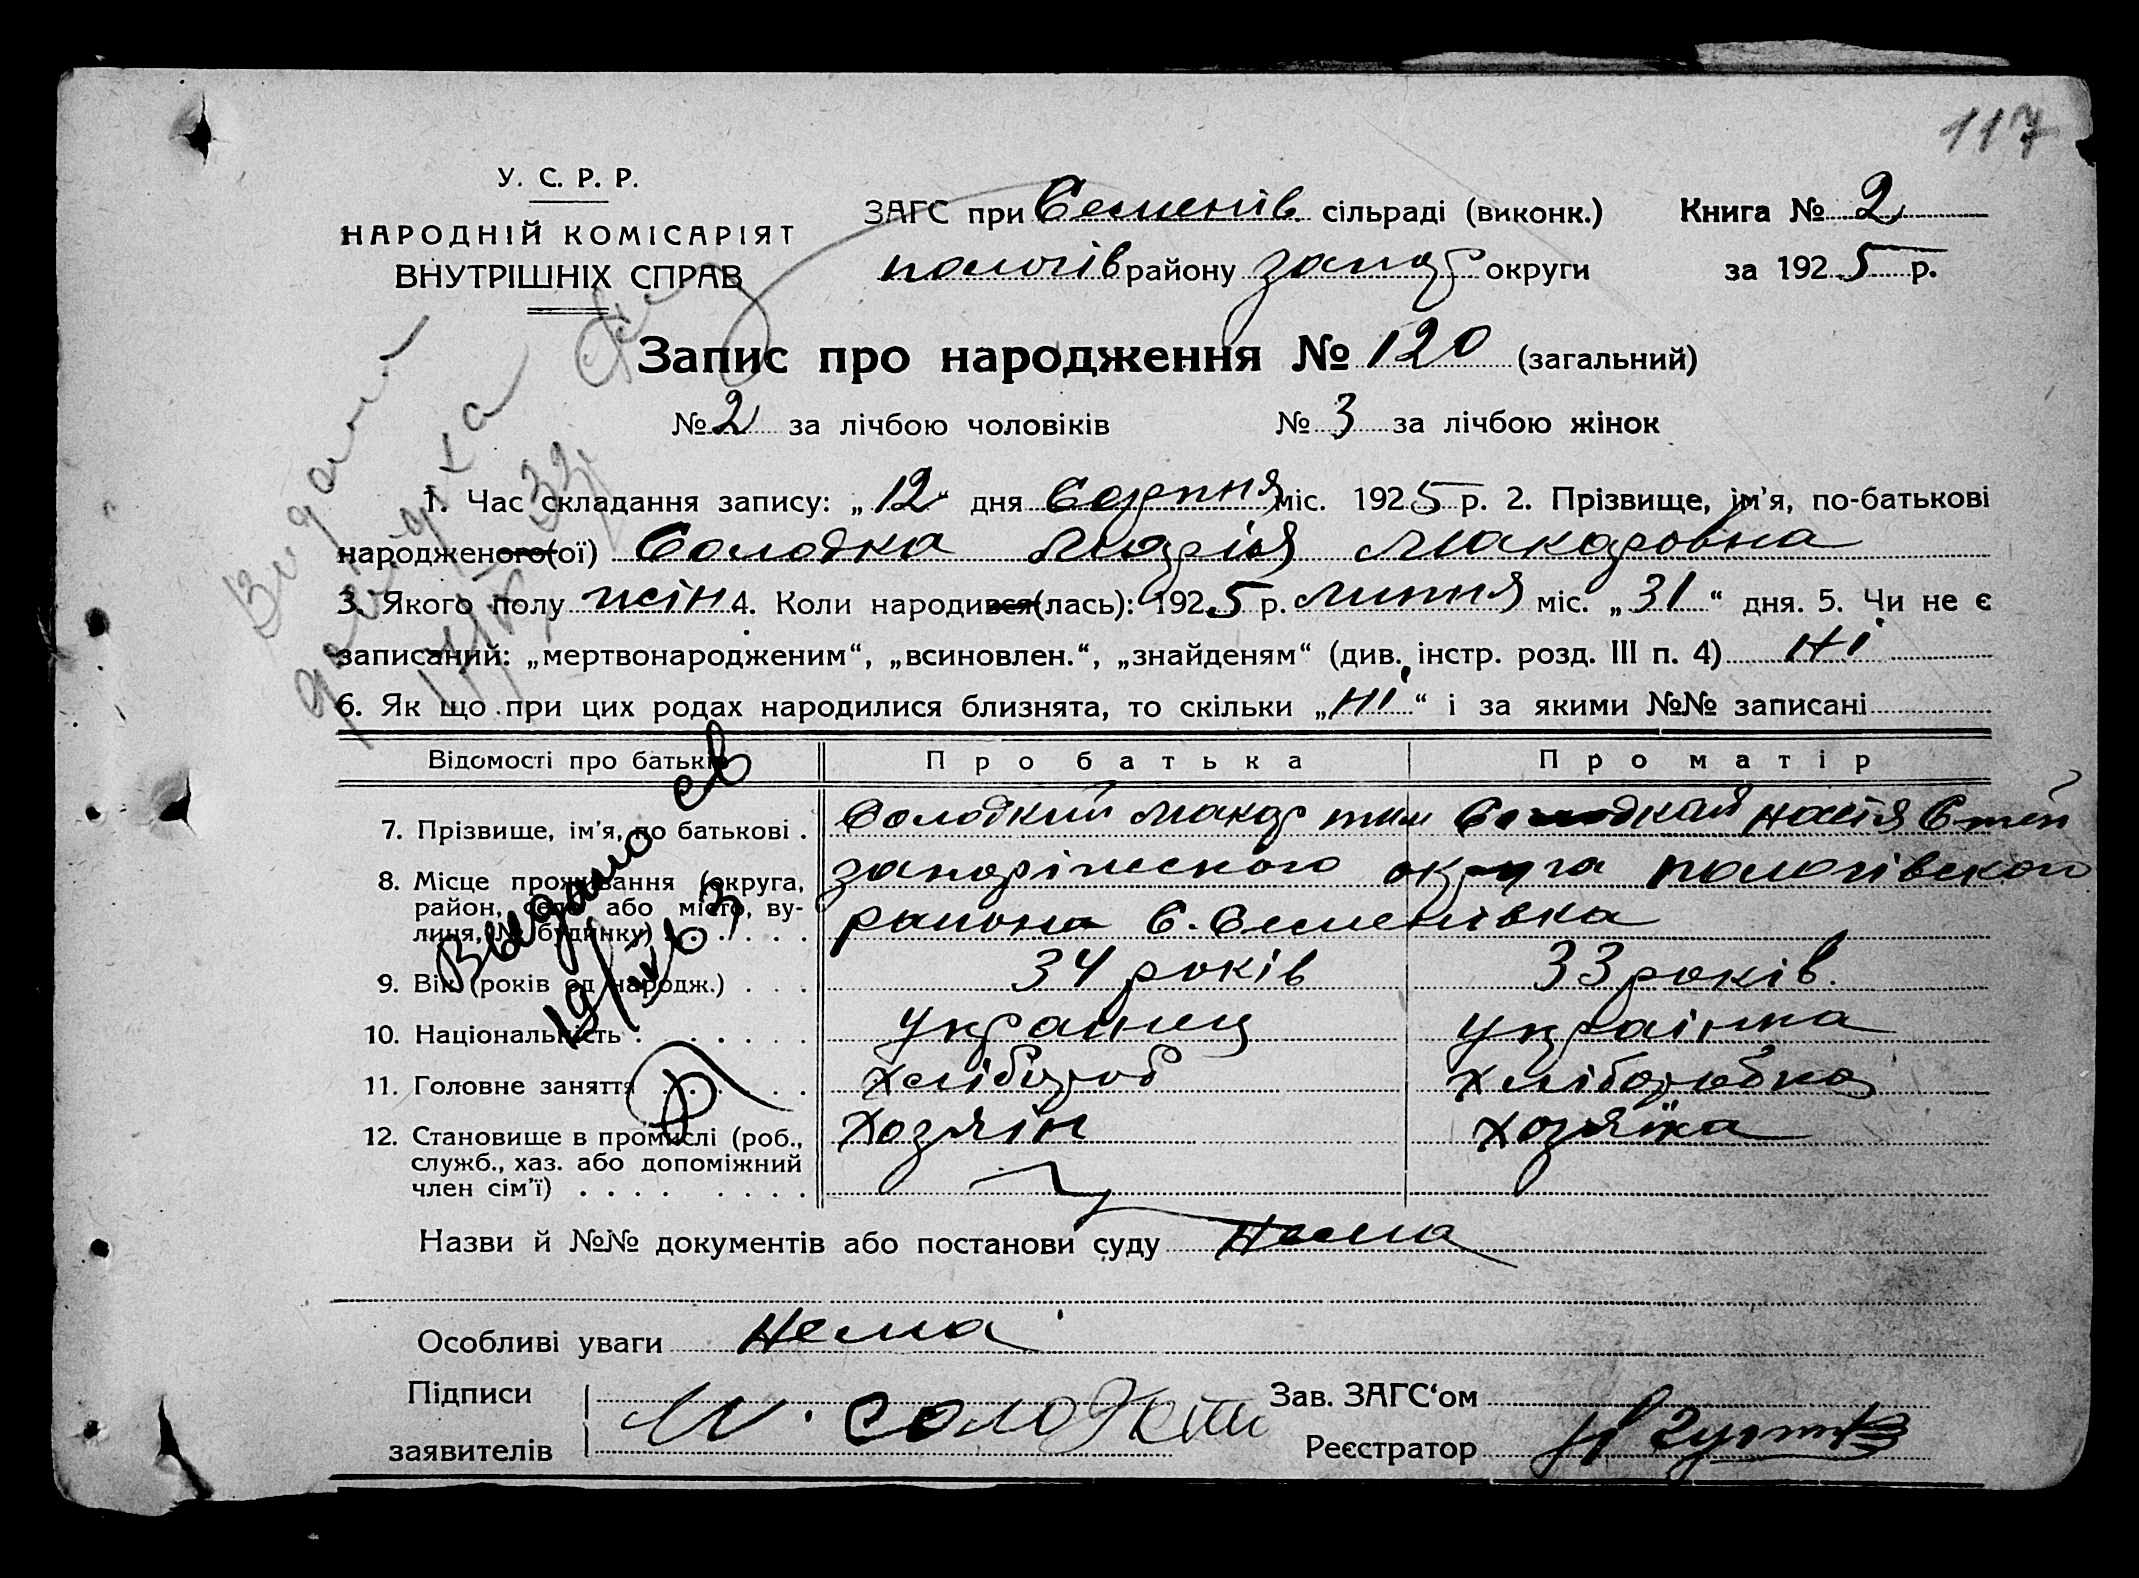 117
У. С. Р. Р.
НАРОДНІЙ КОМІСАРІЯТ
ВНУТРІШНІХ СПРАВ
ЗАГС при Семенів. сільраді (виконк.) Книга № 2
пологів району запор округи за 1925 р.
Запис про народження № 120 (загальний)
№ 2 за лічбою чоловіків № 3 за лічбою жінок
1. Час складання запису: „12“ дня Серпня міс. 1925 р. 2. Прізвище, ім’я, по-батькові
народженого(ої) Солодка Марія Макаровна
3. Якого полу жін 4. Коли народився(лась): 1925 р. Липня міс. „31“ дня. 5. Чи не є
записаний: „мертвонародженим“, „всиновлен.“, „знайденям“ (див. інстр. розд. III п. 4) Ні
6. Як що при цих родах народилися близнята, то скільки „Ні“ і за якими №№ записані
Відомості про батьків Про батька Про матір
7. Прізвище, ім’я, по батькові . Солодкий Макар тим Солодкая Настя Степ
8. Місце проживання (округа, запоріжского округа пологівского
район, село або місто, ву- района С. Семенівка
лиця, № будинку)
9. Вік (років од народж.) . . . 34 років 33 років.
10. Національність . украинец українка
11. Головне заняття хлібороб хліборобка
12. Становище в промислі (роб., Хозяін хозяїка
служб., хаз. або допоміжний
член сім’ї)
Видано св
19/IV 63
Видан
Назви й №№ документів або постанови суду Нема
Особливі уваги Нема
Підписи
заявителів М. Солодкий
Зав. ЗАГС‘ом
Реєстратор